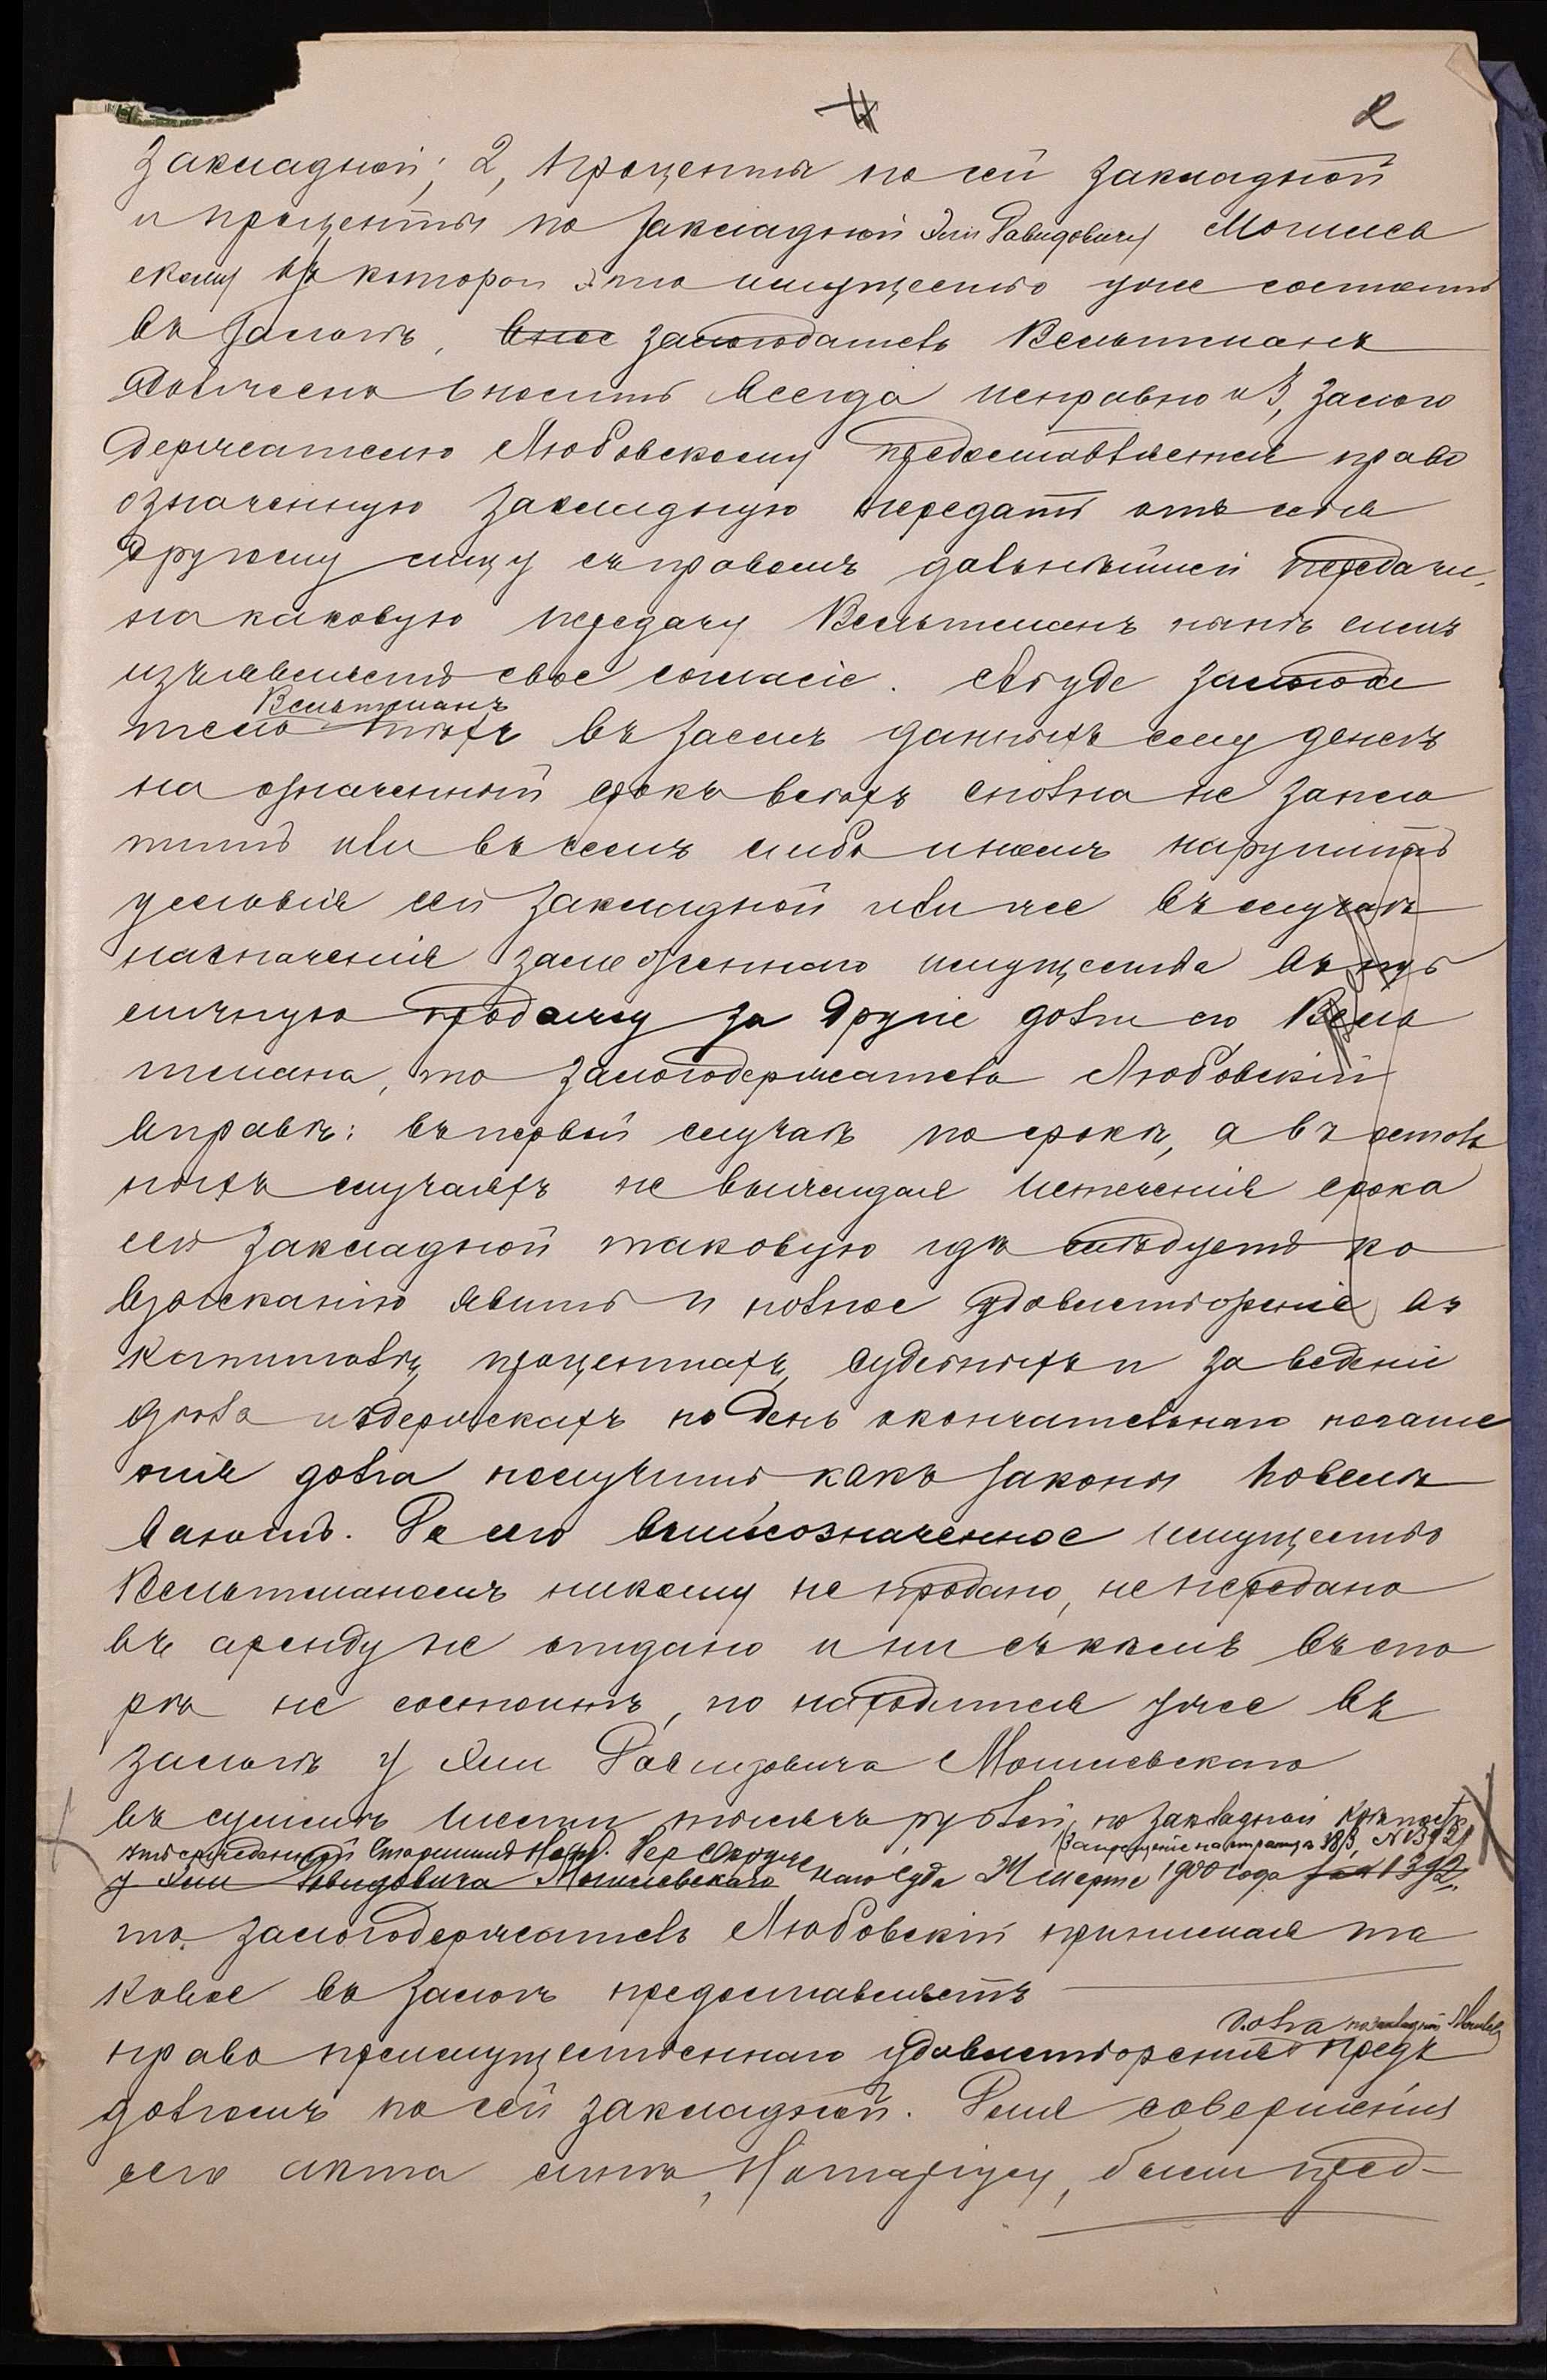 2
закладной; 2, проценты по сей закладной
и проценты по закладной Эли Давидовичу Могилев
скому въ которой это имущество уже состоитъ
въ залогѣ, внос залогодатель Вельтманъ
долженъ вносить всегда исправно и 3, залого
держателю Любовскому предоставляется право
означенную закладную передать отъ себя
другому лицу съ правомъ дальнѣйшей передачи,
на каковую передачу Вельтманъ нынѣ симъ
изъявляетъ свое согласіе. А буде залогода
тель Вельтманъ тѣхъ въ заемъ данныхъ ему денегъ
на означенный срокъ всѣхъ сполна не запла
титъ или въ чемъ либо иномъ нарушитъ
условія сей закладной или же въ случаѣ
назначенія заложеннаго имущества въ пуб
личную продажу за другіе долги его Вель
тмана, то залогодержатель Любовскій
вправѣ: въ первый случаѣ по срокѣ, а въ осталь
ныхъ случаяхъ не выжидая истеченія срока
сей закладной таковую гдѣ слѣдуетъ ко
взысканію явить и полное удовлетвореніе въ
капиталѣ, процентахъ, судебныхъ и за веденіе
дѣла издержкахъ по день окончательнаго погаше
нія долга получить, какъ законы повелѣ
ваютъ. До сего вышеозначенное имущество
Вельтманомъ никому не продано, не передано
въ аренду не отдано и ни съ кѣмъ въ спо
рѣ не состоитъ, но находится уже въ
залогѣ у Эли Давидовича Могилевскаго
въ суммѣ шести тысячъ рублей, по закладной крѣпости
утвержденной Старшимъ Нотар. Хер Окруж
наго Суда 24 марта 1900 года за № 1392. (Запрещеніе на страницѣ 383, № 13921
у Эли Давидовича Могилевскаго
то залогодержатель Любовскій принимая та
ковое въ залогъ предоставляетъ
право преимущественнаго удовлетворенія долга по закладной Могилев предъ
долгомъ по сей закладной. Для совершенія
сего акта мнѣ, Нотаріусу, были пред-